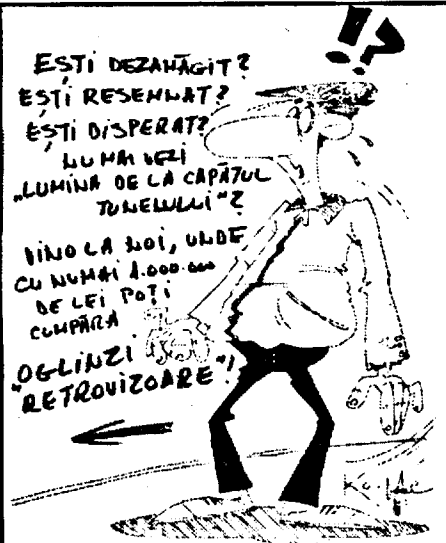 !?
EȘTI DEZAMĂGIT?
EȘTI RESEMNAT?
EȘTI DISPERAT?
NU MAI VEZI
„LUMINA DE LA CAPĂTUL
TUNELULUI"?
VINO LA NOI, UNDE
CU NUMAI 1.000.000
DE LEI POȚI
CUMPĂRA
"OGLINZI
RETROVIZOARE"!